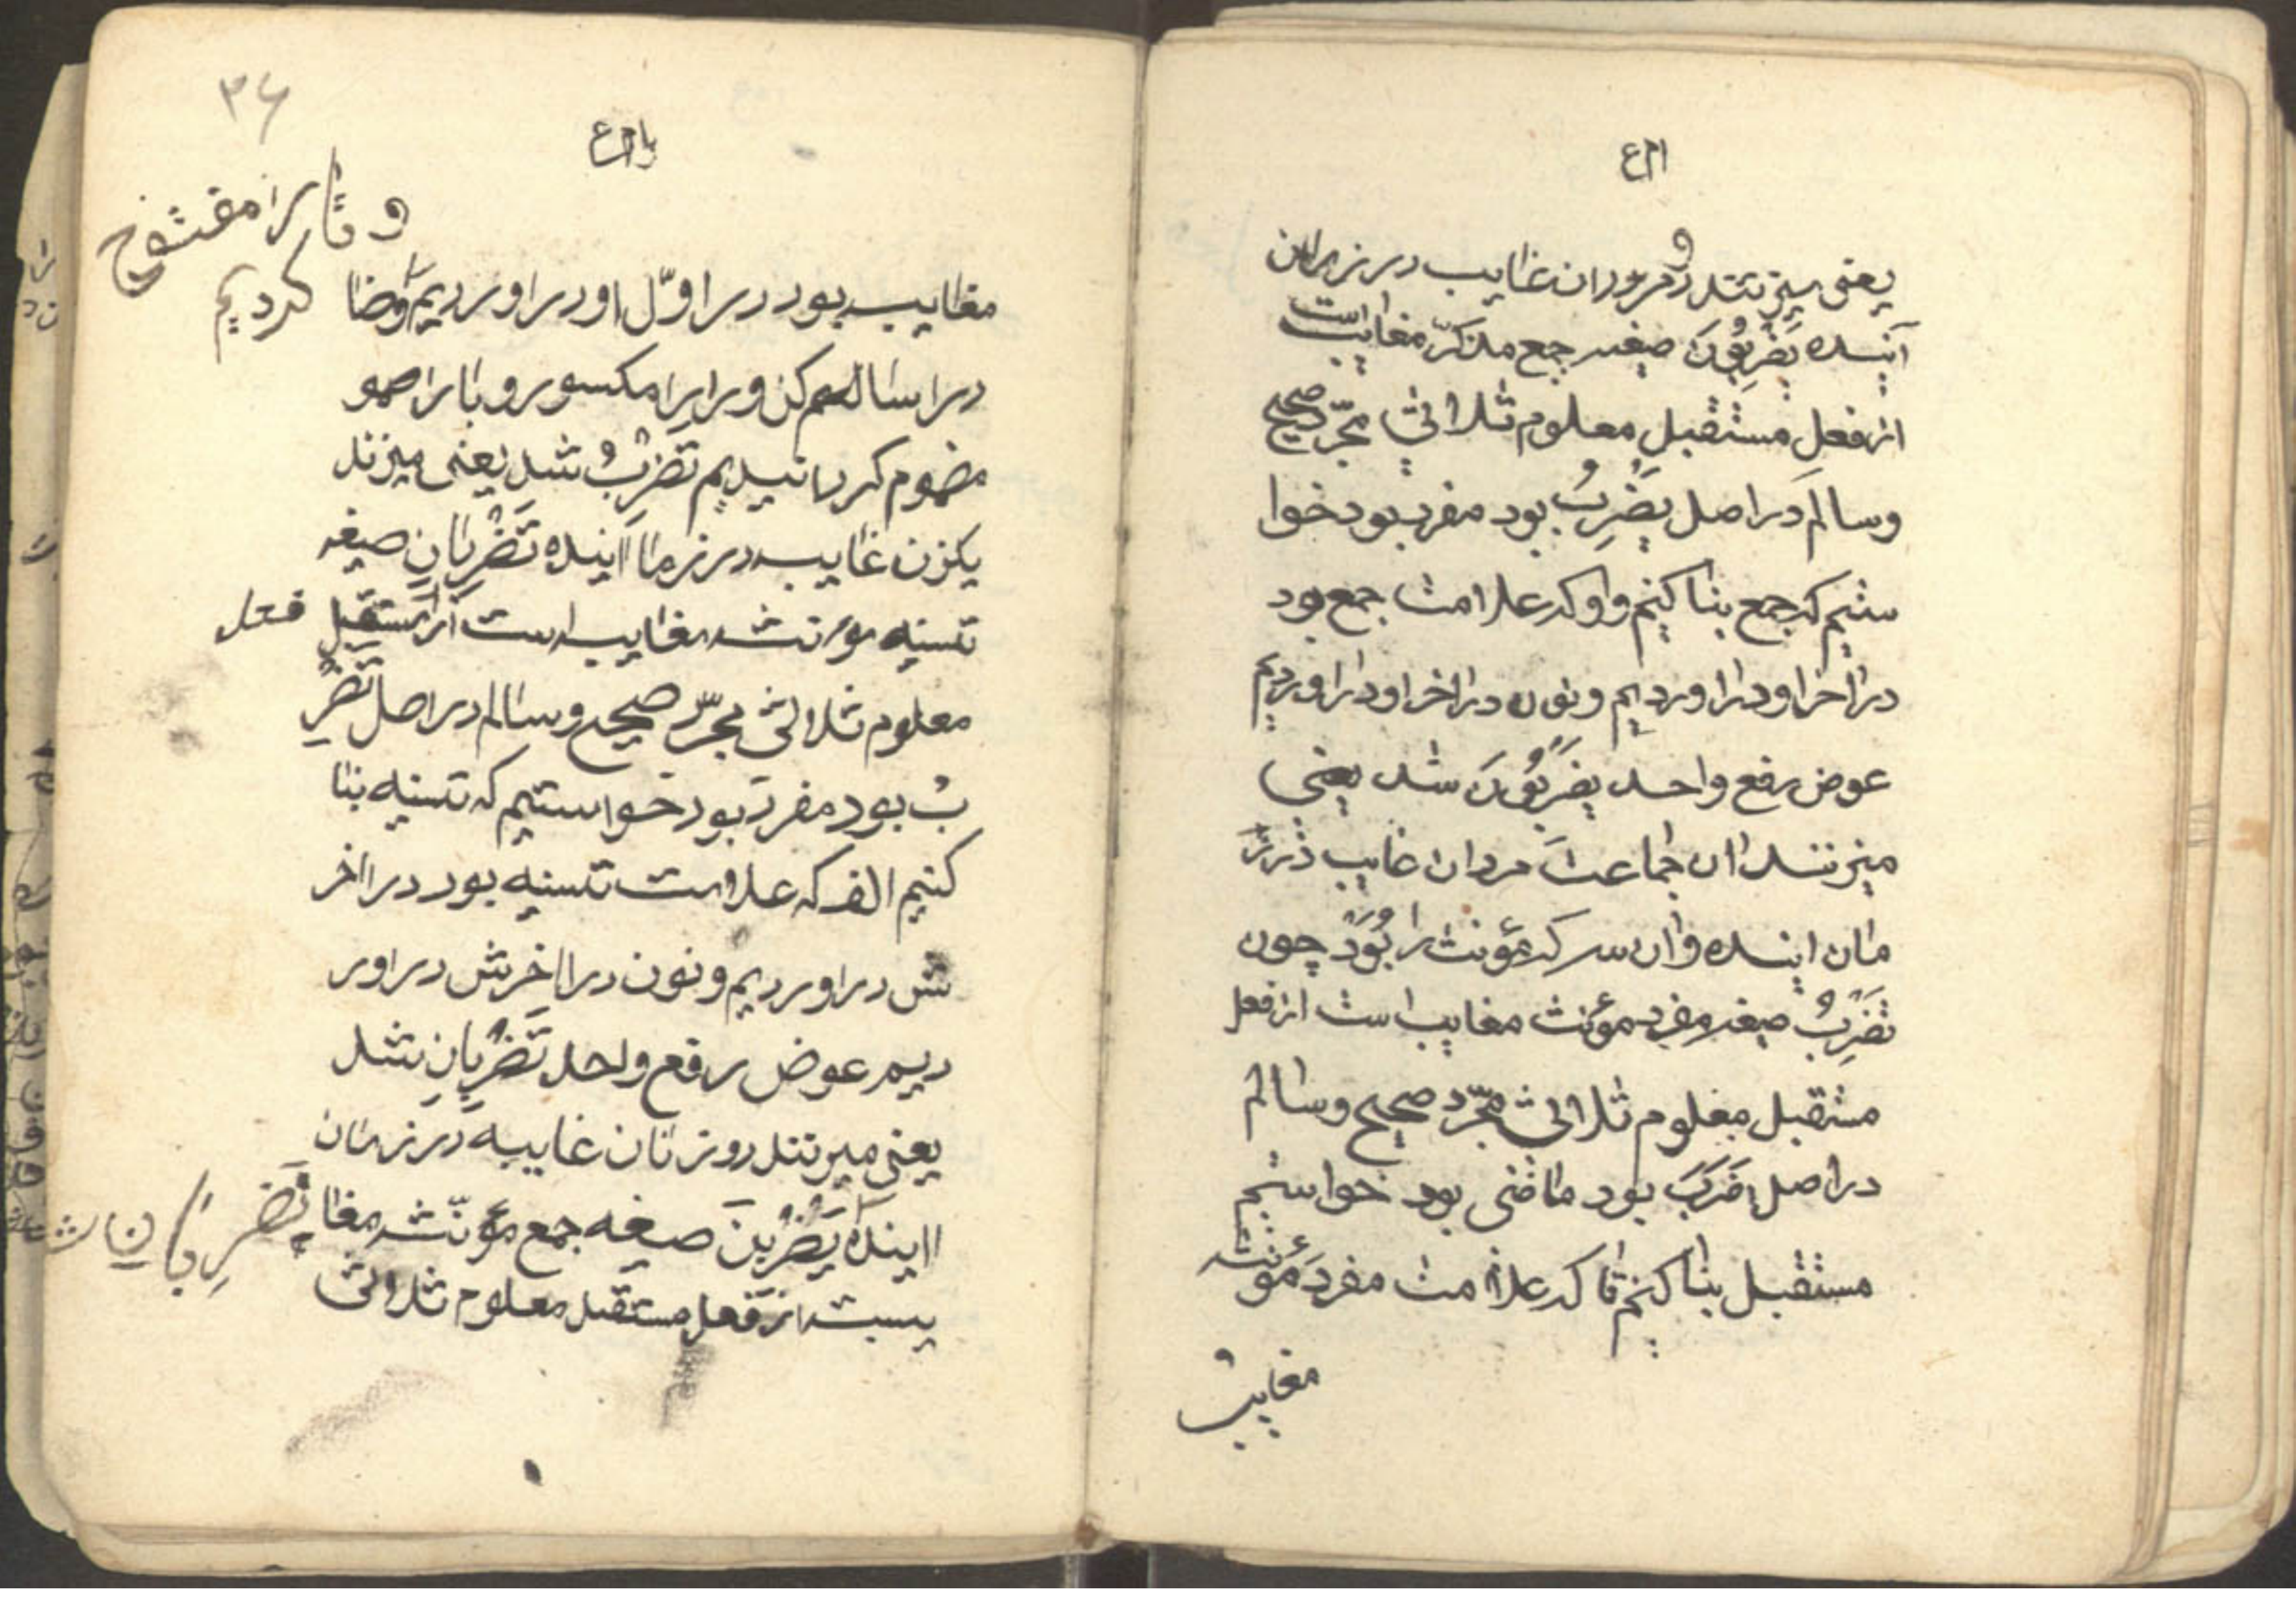 یعنی میزنند دو مردان غایب در زمان
آینده یَضْرِبُونَ صیغه جمع مذکرّ مغایب است
از فعل مستقبل معلوم ثلاثی مجرّد صحیح
و سالم در اصل یَضْرِبُ بود مفرد بود خوا
ستیم که جمع بنا کنیم واو که علامت جمع بود
در اخر او در اوردیم و نون در اخر او در اوردیم
عوض رفع واحد یَضْرِبُونَ شد یعنی
میزنند ان جماعت مردان غایب در ز
مان اینده و ان سه که مؤنث را بُوَد چون
تَضْرِبُ صیغه مفرد مؤنث مغایب است از فعل
مستقبل معلوم ثلاثی مجرّد صحیح و سالم
در اصل ضَرَبَ بود ماضی بود خواستیم
مستقبل بنا کنیم تا که علامت مفرد مؤنثه
مغایب
۳۶
و تا را مفتوح
کردیم
مغایب بود در اوّل او در اوردیم و ضا
در اساله هم کن و را را مکسور و با را همو
مضموم کردانیدیم تَضْرِبُ شد یعنی میزند
یکزن غایب در زما اینده تَضْرِبَانِ صیغه
تسنیه مؤنثه مغایب است از مستقبل فعل
معلوم ثلاثی مجرّد صحیح و سالم در اصل تَضْرِ
بُ بود مفرد بود خواستیم که تسنیه بنا
کنیم الف که علامت تسنیه بود در اخر
ش در اوردیم و نون در اخرش در اور
دیم عوض رفع واحد تَضْرِبَانِ شد
یعنی میزنند دو زنان غایبه در زمان
اینده یَضْرِبْنَ صیغه جمع مؤنّثه مغا
تَضْرِبَانِ
یبست از فعل مستقبل معلوم ثلاثی